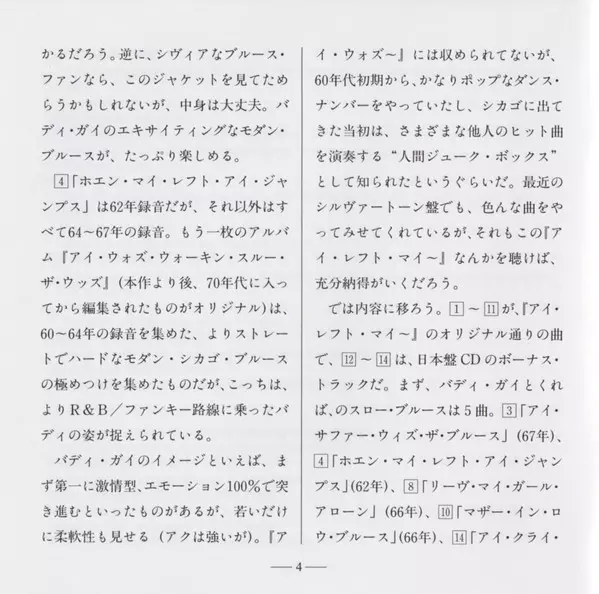 かるだろう。逆に、シヴィアなブルース・
ファンなら、このジャケットを見てため
らうかもしれないが、中身は大丈夫。バ
ディ・ガイのエキサイティングなモダン・
ブルースが、たっぷり楽しめる。
4「ホエン・マイ・レフト・アイ・ジャ
ンプス」は62年録音だが、それ以外はす
べて64〜67年の録音。もう一枚のアルバ
ム『アイ・ウォズ・ウォーキン・スルー・
ザ・ウッズ』(本作より後、70年代に入っ
てから編集されたものがオリジナル)は、
60〜64年の録音を集めた、よりストレー
トでハードなモダン・シカゴ・ブルース
の極めつけを集めたものだが、こっちは、
よりR&B/ファンキー路線に乗ったバ
ディの姿が捉えられている。
バディ・ガイのイメージといえば、ま
ず第一に激情型、エモーション100%で突
き進むといったものがあるが、若いだけ
に柔軟性も見せる(アクは強いが)。『ア
イ・ウォズ〜』には収められてないが、
60年代初期から、かなりポップなダンス・
ナンバーをやっていたし、シカゴに出て
きた当初は、さまざまな他人のヒット曲
を演奏する“人間ジューク・ボックス”
として知られたというぐらいだ。最近の
シルヴァートーン盤でも、色んな曲をや
ってみせてくれているが、それもこの『ア
イ・レフト・マイ〜』なんかを聴けば、
充分納得がいくだろう。
では内容に移ろう。1〜11が、『アイ・
レフト・マイ〜』のオリジナル通りの曲
で、12〜14は、日本盤CDのボーナス・
トラックだ。まず、バディ・ガイとくれ
ば、のスロー・ブルースは5曲。3「アイ・
サファー・ウィズ・ザ・ブルース」(67年)、
4「ホエン・マイ・レフト・アイ・ジャン
プス」(62年)、8「リーヴ・マイ・ガール・
アローン」(66年)、10「マザー・イン・ロ
ウ・ブルース」(66年)、14「アイ・クライ・
— 4 —